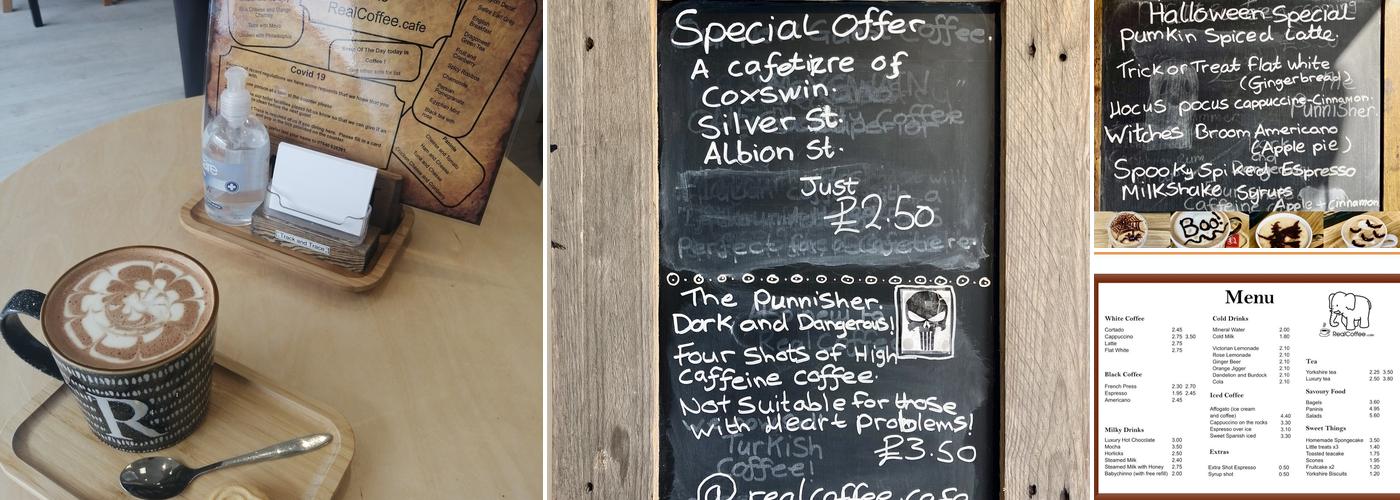 RealCoffee.cafe
Brie Cheese and Mango
Chutney
Tuna with Mayo
Chicken with Philadelphia
Soup Of The Day today is
Coffee !
See other side for list
English
Breakfast
Dragonwell
Green Tea
Fruit and
Cranberry
Spicy Rooibos
Chamomile
Persian
Pomegranate
Egyptian Mint
Black tea with
rose
Covid 19
Paninis
Cheese and Tomato
Ham and Cheese
Tuna and Cheese
Chicken Cheese and
care
Track and Trace
R
Special Offer
A cafetizre of
Coxswin.
Silver St.
Albion St.
Just
£2.50
Perfect for a Cafetiere.
The Punnisher.
Dark and Dangerous!
Four Shots of High
Caffeine coffee.
Not Suitable for those
with Heart Problems!
£3.50
Turkish
Coffee!
@realcoffee.cafe
Halloween Special
Pumkin Spiced Latte.
Trick or Treat flat white
(Gingerbread)
Hocus pocus cappuccino-Cinnamon.
Punnisher.
Witches Broom Americano
(Apple pie)
Spooky Spiked Espresso
Milkshake Syrups
Caffeine Apple + Cinnamon
Boo!
Menu
RealCoffee.com
White Coffee
Cortado 2.45
Cappuccino 2.75 3.50
Latte 2.75
Flat White 2.75
Black Coffee
French Press 2.30 2.70
Espresso 1.95 2.45
Americano 2.45
Milky Drinks
Luxury Hot Chocolate 3.00
Mocha 3.50
Horlicks 2.50
Steamed Milk 2.40
Steamed Milk with Honey 2.75
Babychinno (with free refill) 2.00
Cold Drinks
Mineral Water 2.00
Cold Milk 1.80
Victorian Lemonade 2.10
Rose Lemonade 2.10
Ginger Beer 2.10
Orange Jigger 2.10
Dandelion and Burdock 2.10
Cola 2.10
Iced Coffee
Affogato (ice cream
and coffee) 4.40
Cappuccino on the rocks 3.30
Espresso over ice 3.10
Sweet Spanish iced 3.30
Extras
Extra Shot Espresso 0.50
Syrup shot 0.50
Tea
Yorkshire tea 2.25 3.50
Luxury tea 2.50 3.80
Savoury Food
Bagels 3.60
Paninis 4.95
Salads 5.60
Sweet Things
Homemade Spongecake 3.50
Little treats x3 1.40
Toasted teacake 1.75
Scones 1.95
Fruitcake x2 1.20
Yorkshire Biscuits 1.20